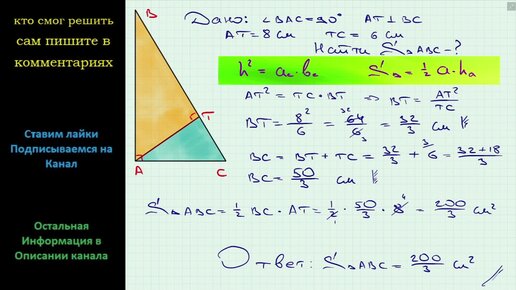 кто смог решить
сам пишите в
комментариях
Ставим лайки
Подписываемся на
Канал
Остальная
Информация в
Описании канала
B
T
A
C
Дано: ∠BAC=90° AT⊥BC
AT=8 см TC=6 см
Найти S△ABC-?
h²=aс·bс S△=½a·hₐ
AT²=TC·BT ⇒ BT=AT²/TC
BT=8²/6=64/6=32/3 см
32
3
BC=BT+TC=32/3+6=(32+18)/3
3
BC=50/3 см
S△ABC=½BC·AT=½·50/3·8=200/3 см²
1
4
Ответ: S△ABC=200/3 см²